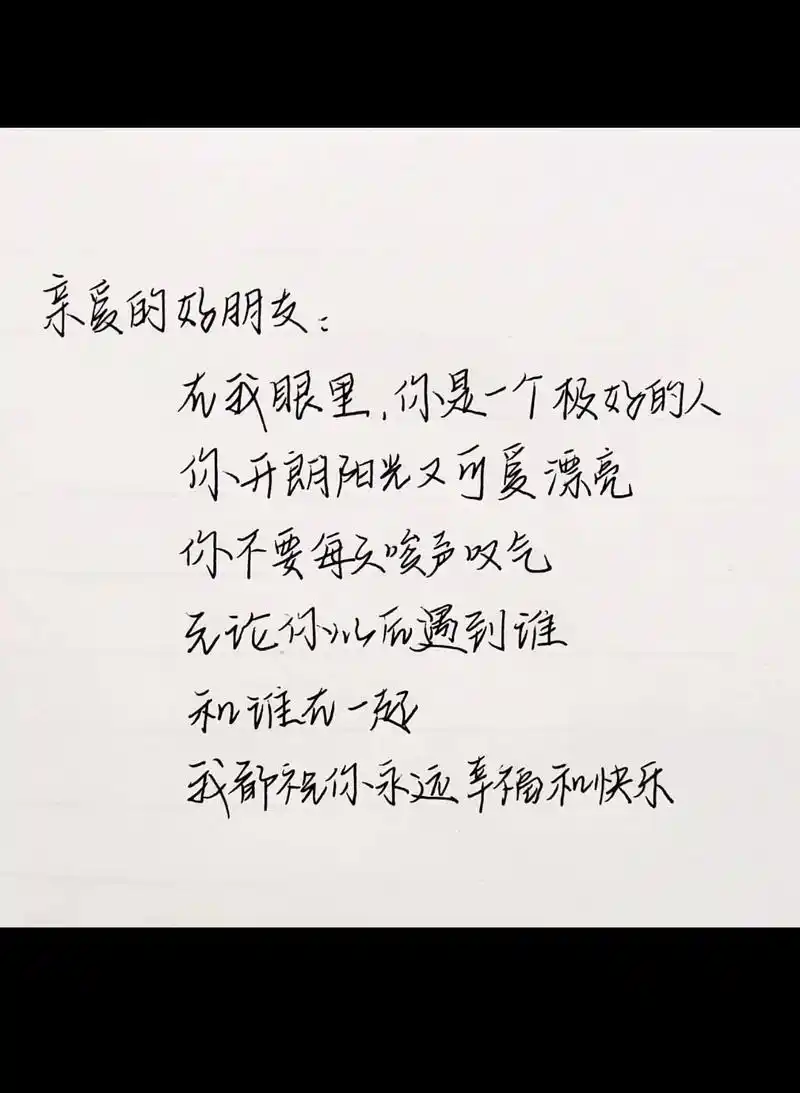 亲爱的好朋友：
在我眼里，你是一个极好的人
你开朗阳光又可爱漂亮
你不要每天唉声叹气
无论你以后遇到谁
和谁在一起
我都祝你永远幸福和快乐